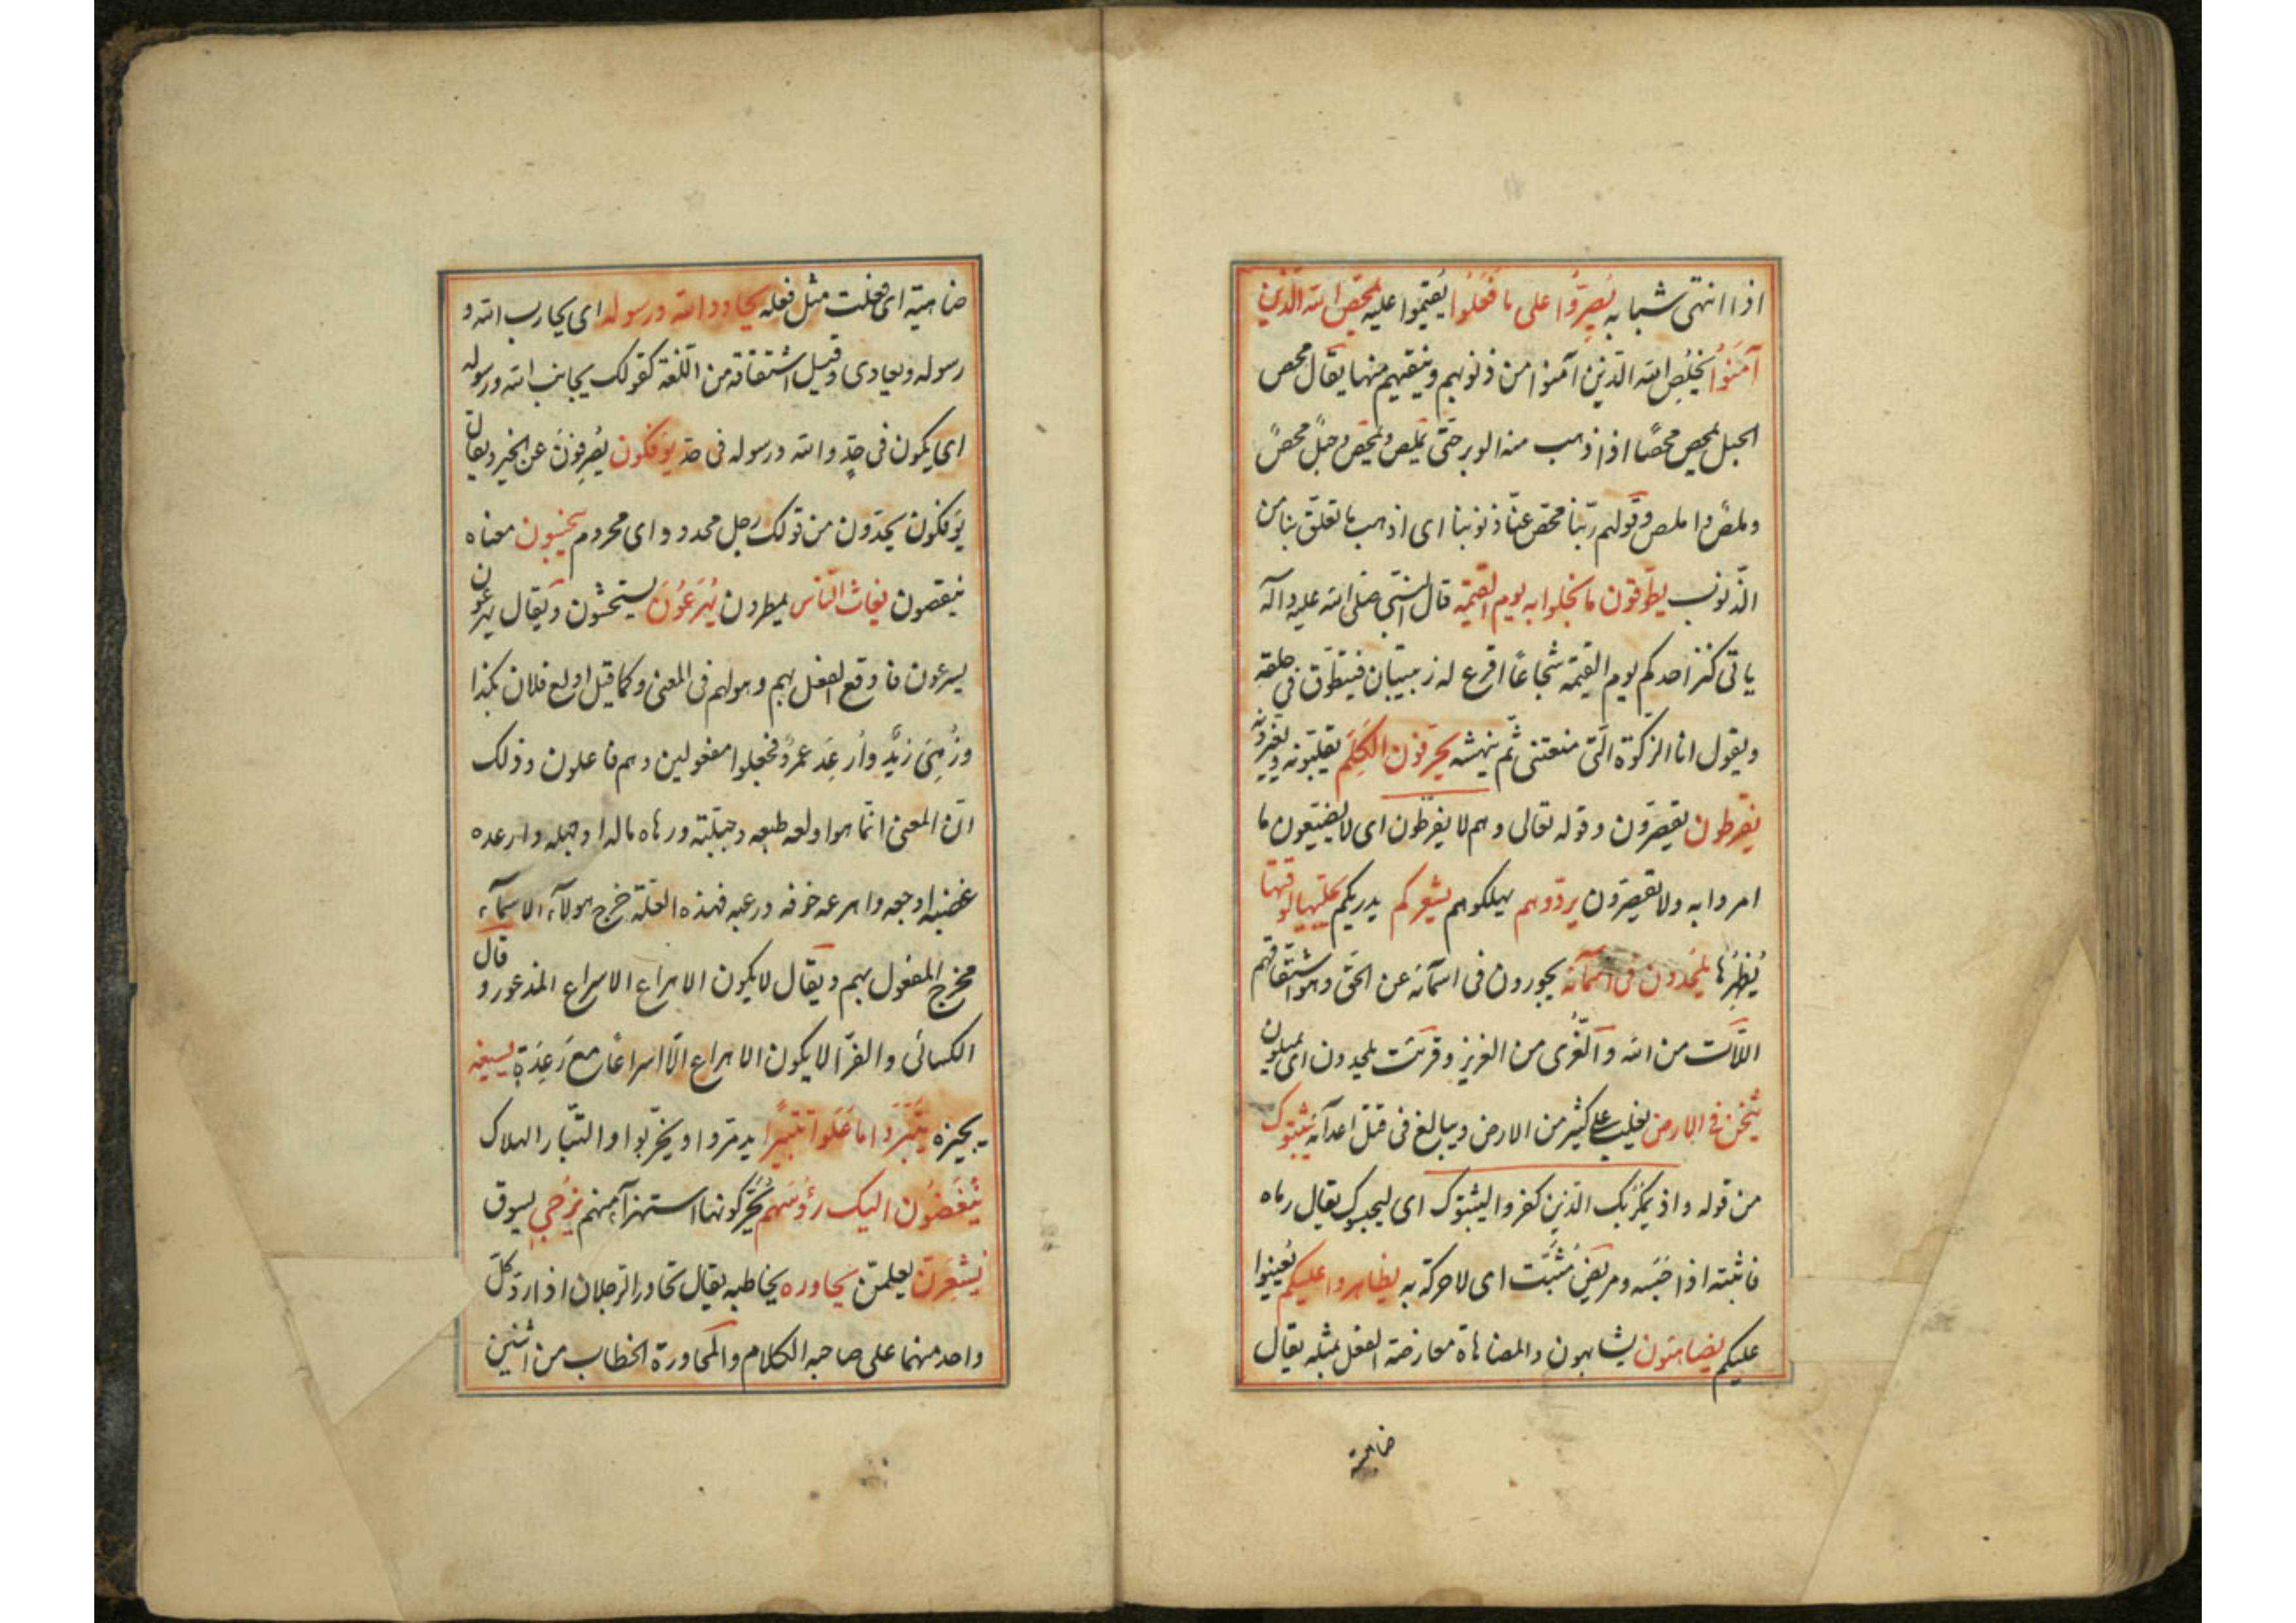 اذا انتهى شبابه يُصِرُّوا على ما فَعَلُوا يُقيموا عليه يمحّص الله الذين
آمَنُوا يُخَلِّصِ الله الّذين آمنوا من ذنوبهم وينقيهم منها يقال محص
الحبل يمحص محصًا اذا ذهب منه الوبر حتى يملص ويمحص وحبلٌ محصٌ
وملصٌ واملص وقولهم ربّنا محّص عنّا ذنوبنا اى اذهب ما تعلّق بنا من
الذّنوب يطوّقون ما بخلوا به يوم القيمة قال النبىّ صلى الله عليه وآله
ياتى كنز احدكم يوم القيمة شجاعًا اقرع له زبيبتان فيتطوّق فى حلقه
ويقول انا الزكوة الّتى منعتنى ثمّ ينهشه يحرّفون الكَلِمَ يقلبونه ويغيرونه
يفرطون يقصّرون وقوله تعالى وهم لا يفرّطون اى لا يضيّعون ما
امروا به ولا يقصّرون يردّوهم يهلكوهم يشعركم يدريكم يجلّيها لوقتها
يُظهِرُها يلحدون فى اسمآئه يجورون فى اسمآئه عن الحقّ وهو اشتقاقهم
اللّآت من الله والعُزى من العزيز وقرئت يلحدون اى يميلون
يثخن فى الارض يغلب على كثير من الارض ويبالغ فى قتل اعدآئه يثبتوك
من قوله واذ يمكر بك الذين كفروا ليثبتوك اى ليحبسوك يقال رماه
فاثبته اذا حَبَسَه ومريضٌ مُثبَت اى لا حركة به يظاهروا عليكم يُعينوا
عليكم يضاهئون يشابهون والمضاهاة معارضة الفعل بمثله يقال
ضاهيته
ضاهيته اى فعلت مثل فعله يحادد الله ورسوله اى يحارب الله و
رسوله ويعادى وقيل اشتقاقه من اللّغة كقولك يجانب الله ورسوله
اى يكون فى حدٍّ والله ورسوله فى حدّ يؤفكون يُصْرِفونَ عن الخير ويقال
يؤفكون يحدّون من قولك رجل محدود اى محروم يبخسون معناه
ينقصون يغاث النّاس يمطرون يُهرَعُونَ يستحثّون ويقال يهرعون
يسرعون فاوقع الفعل بهم وهو لهم فى المعنى وكما قيل اولع فلان بكذا
وزُهِىَ زيدٌ وأُرعِدَ عمرٌو فجعلوا مفعولين وهم فاعلون وذلك
انّ المعنى انّما هو اولعه طبعه وجبلّته وزهاه ماله او جهله وارعده
غضبه او وجعه واهرعه خوفه ورعبه فهذه العلّة خرج هولآء الاسمآء
مخرج المفعول بهم ويقال لا يكون الاهراع الا اسراع المذعور وقال
الكسائى والفرّا لا يكون الاهراع الّا اسراعًا مع رَعِدَةٍ يسيغه
يجيزه يُتَبِّرُوا ما عَلَوا تتبيرًا يدمّروا ويخرّبوا والتّبار الهلاك
يُنْغِضُون اليك رؤسَهم يُحَرِّكونها استهزآء منهم يُزْجى يسوق
يُشْعِرَنّ يعلمنّ يحاوره يخاطبه يقال تحاور الرّجلان اذا ردّ كلّ
واحد منهما على صاحبه الكلام والمحاورة الخطاب من اثنين